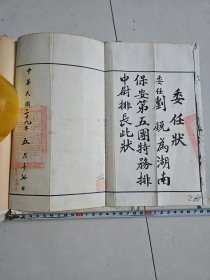 委任狀
委任劉銳為湖南
保安第五團特務排
中尉排長此狀
中華民國二十九年五月十七日